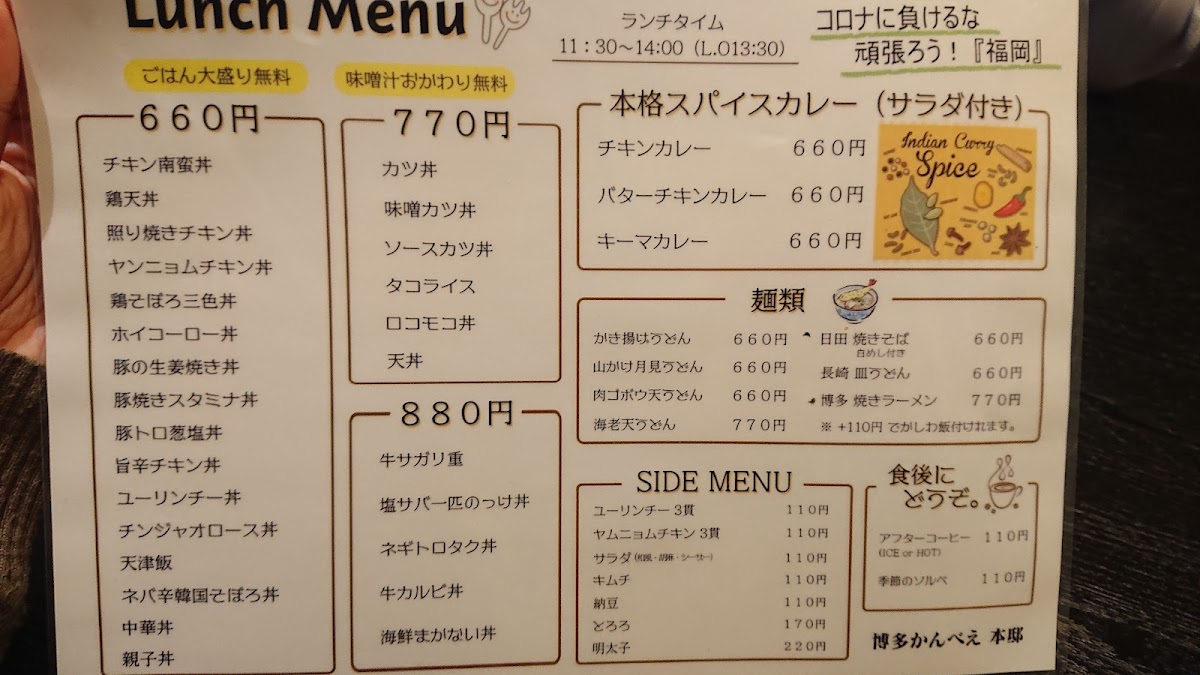 Lunch Menu
ランチタイム
11：30～14:00（L.O13:30）
コロナに負けるな
頑張ろう！『福岡』
ごはん大盛り無料
味噌汁おかわり無料
６６０円
チキン南蛮丼
鶏天丼
照り焼きチキン丼
ヤンニョムチキン丼
鶏そぼろ三色丼
ホイコーロー丼
豚の生姜焼き丼
豚焼きスタミナ丼
豚トロ葱塩丼
旨辛チキン丼
ユーリンチー丼
チンジャオロース丼
天津飯
ネバ辛韓国そぼろ丼
中華丼
親子丼
７７０円
カツ丼
味噌カツ丼
ソースカツ丼
タコライス
ロコモコ丼
天丼
８８０円
牛サガリ重
塩サバ一匹のっけ丼
ネギトロタク丼
牛カルビ丼
海鮮まかない丼
本格スパイスカレー（サラダ付き）
チキンカレー ６６０円
バターチキンカレー ６６０円
キーマカレー ６６０円
Indian Curry
Spice
麺類
かき揚げうどん ６６０円
山かけ月見うどん ６６０円
肉ゴボウ天うどん ６６０円
海老天うどん ７７０円
日田 焼きそば ６６０円
白めし付き
長崎 皿うどん ６６０円
博多 焼きラーメン ７７０円
※ +110円 でかしわ飯付けれます。
SIDE MENU
ユーリンチー 3貫 １１０円
ヤムニョムチキン 3貫 １１０円
サラダ（和風・胡麻・シーザー） １１０円
キムチ １１０円
納豆 １１０円
とろろ １７０円
明太子 ２２０円
食後に
どうぞ。
アフターコーヒー １１０円
(ICE or HOT)
季節のソルベ １１０円
博多かんべえ 本邸